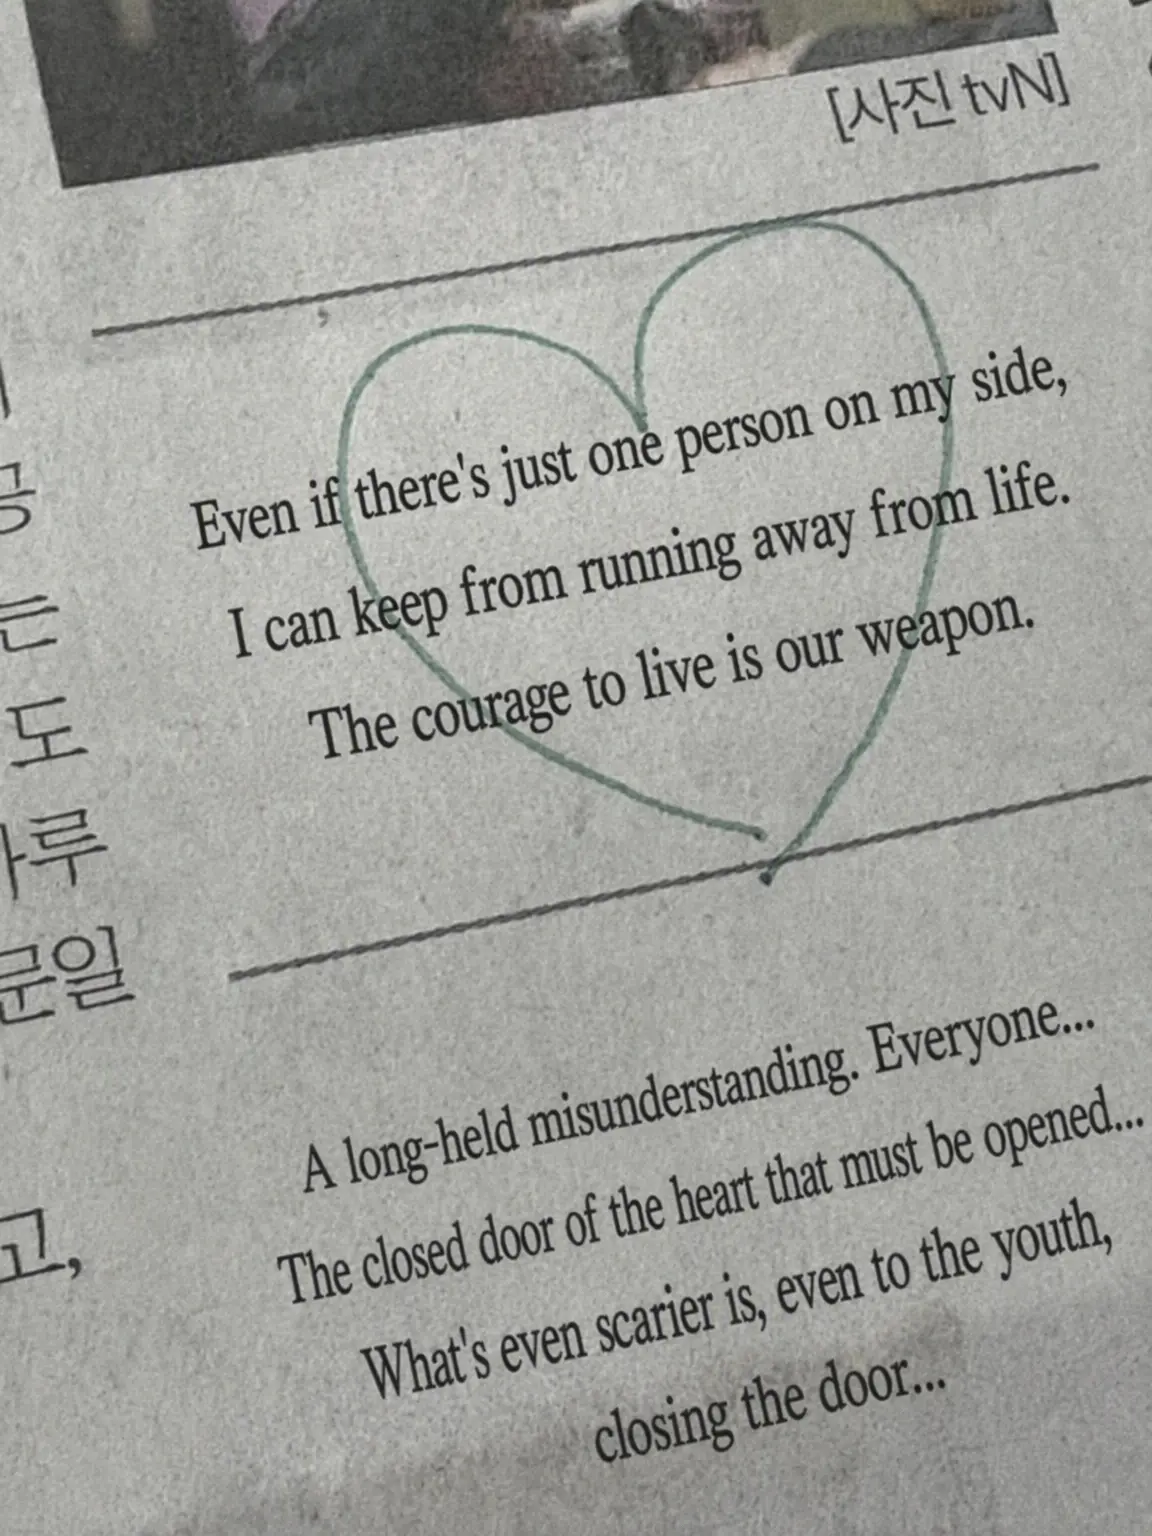 [사진 tvN]
Even if there's just one person on my side,
I can keep from running away from life.
The courage to live is our weapon.
는
도
루
문일
고,
A long-held misunderstanding. Everyone...
The closed door of the heart that must be opened...
What's even scarier is, even to the youth,
closing the door...